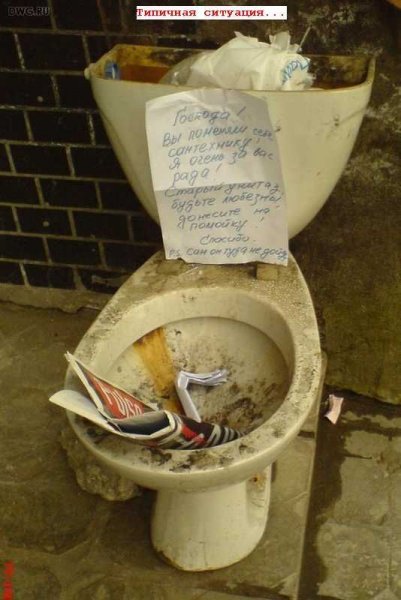 DWG.RU
Типичная ситуация...
Господа!
Вы поменяли себе
сантехнику!
Я очень за вас
рада!
Старый унитаз,
будьте любезны,
донесите на
помойку!
Спасибо.
P.S. Сам он туда не дойдёт